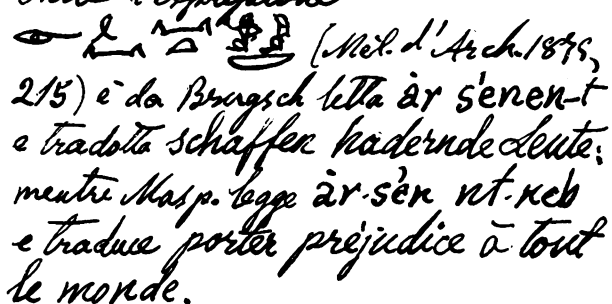 l'espressione
(Mél. d'Arch. 1875,
215) è da Brugsch letta àr s'enen-t
e tradotta schaffen hadernde Leute;
mentre Masp. legge àr-s'en nt-neb
e traduce porter préjudice à tout
le monde.